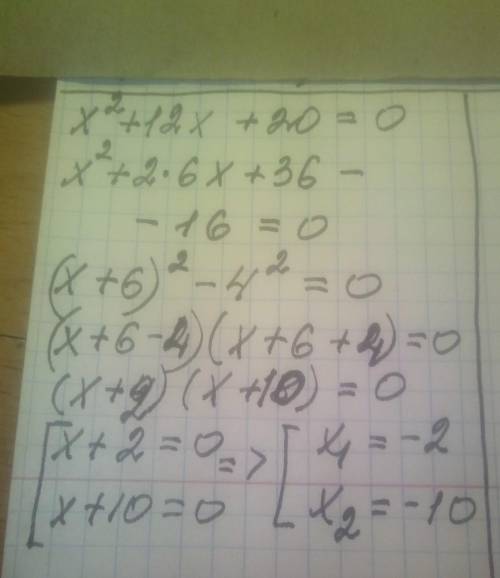 x² + 12x + 20 = 0
x² + 2·6x + 36 -
- 16 = 0
(x + 6)² - 4² = 0
(x + 6 - 4)(x + 6 + 4) = 0
(x + 2)(x + 10) = 0
[ x + 2 = 0 => [ x₁ = -2
x + 10 = 0 x₂ = -10